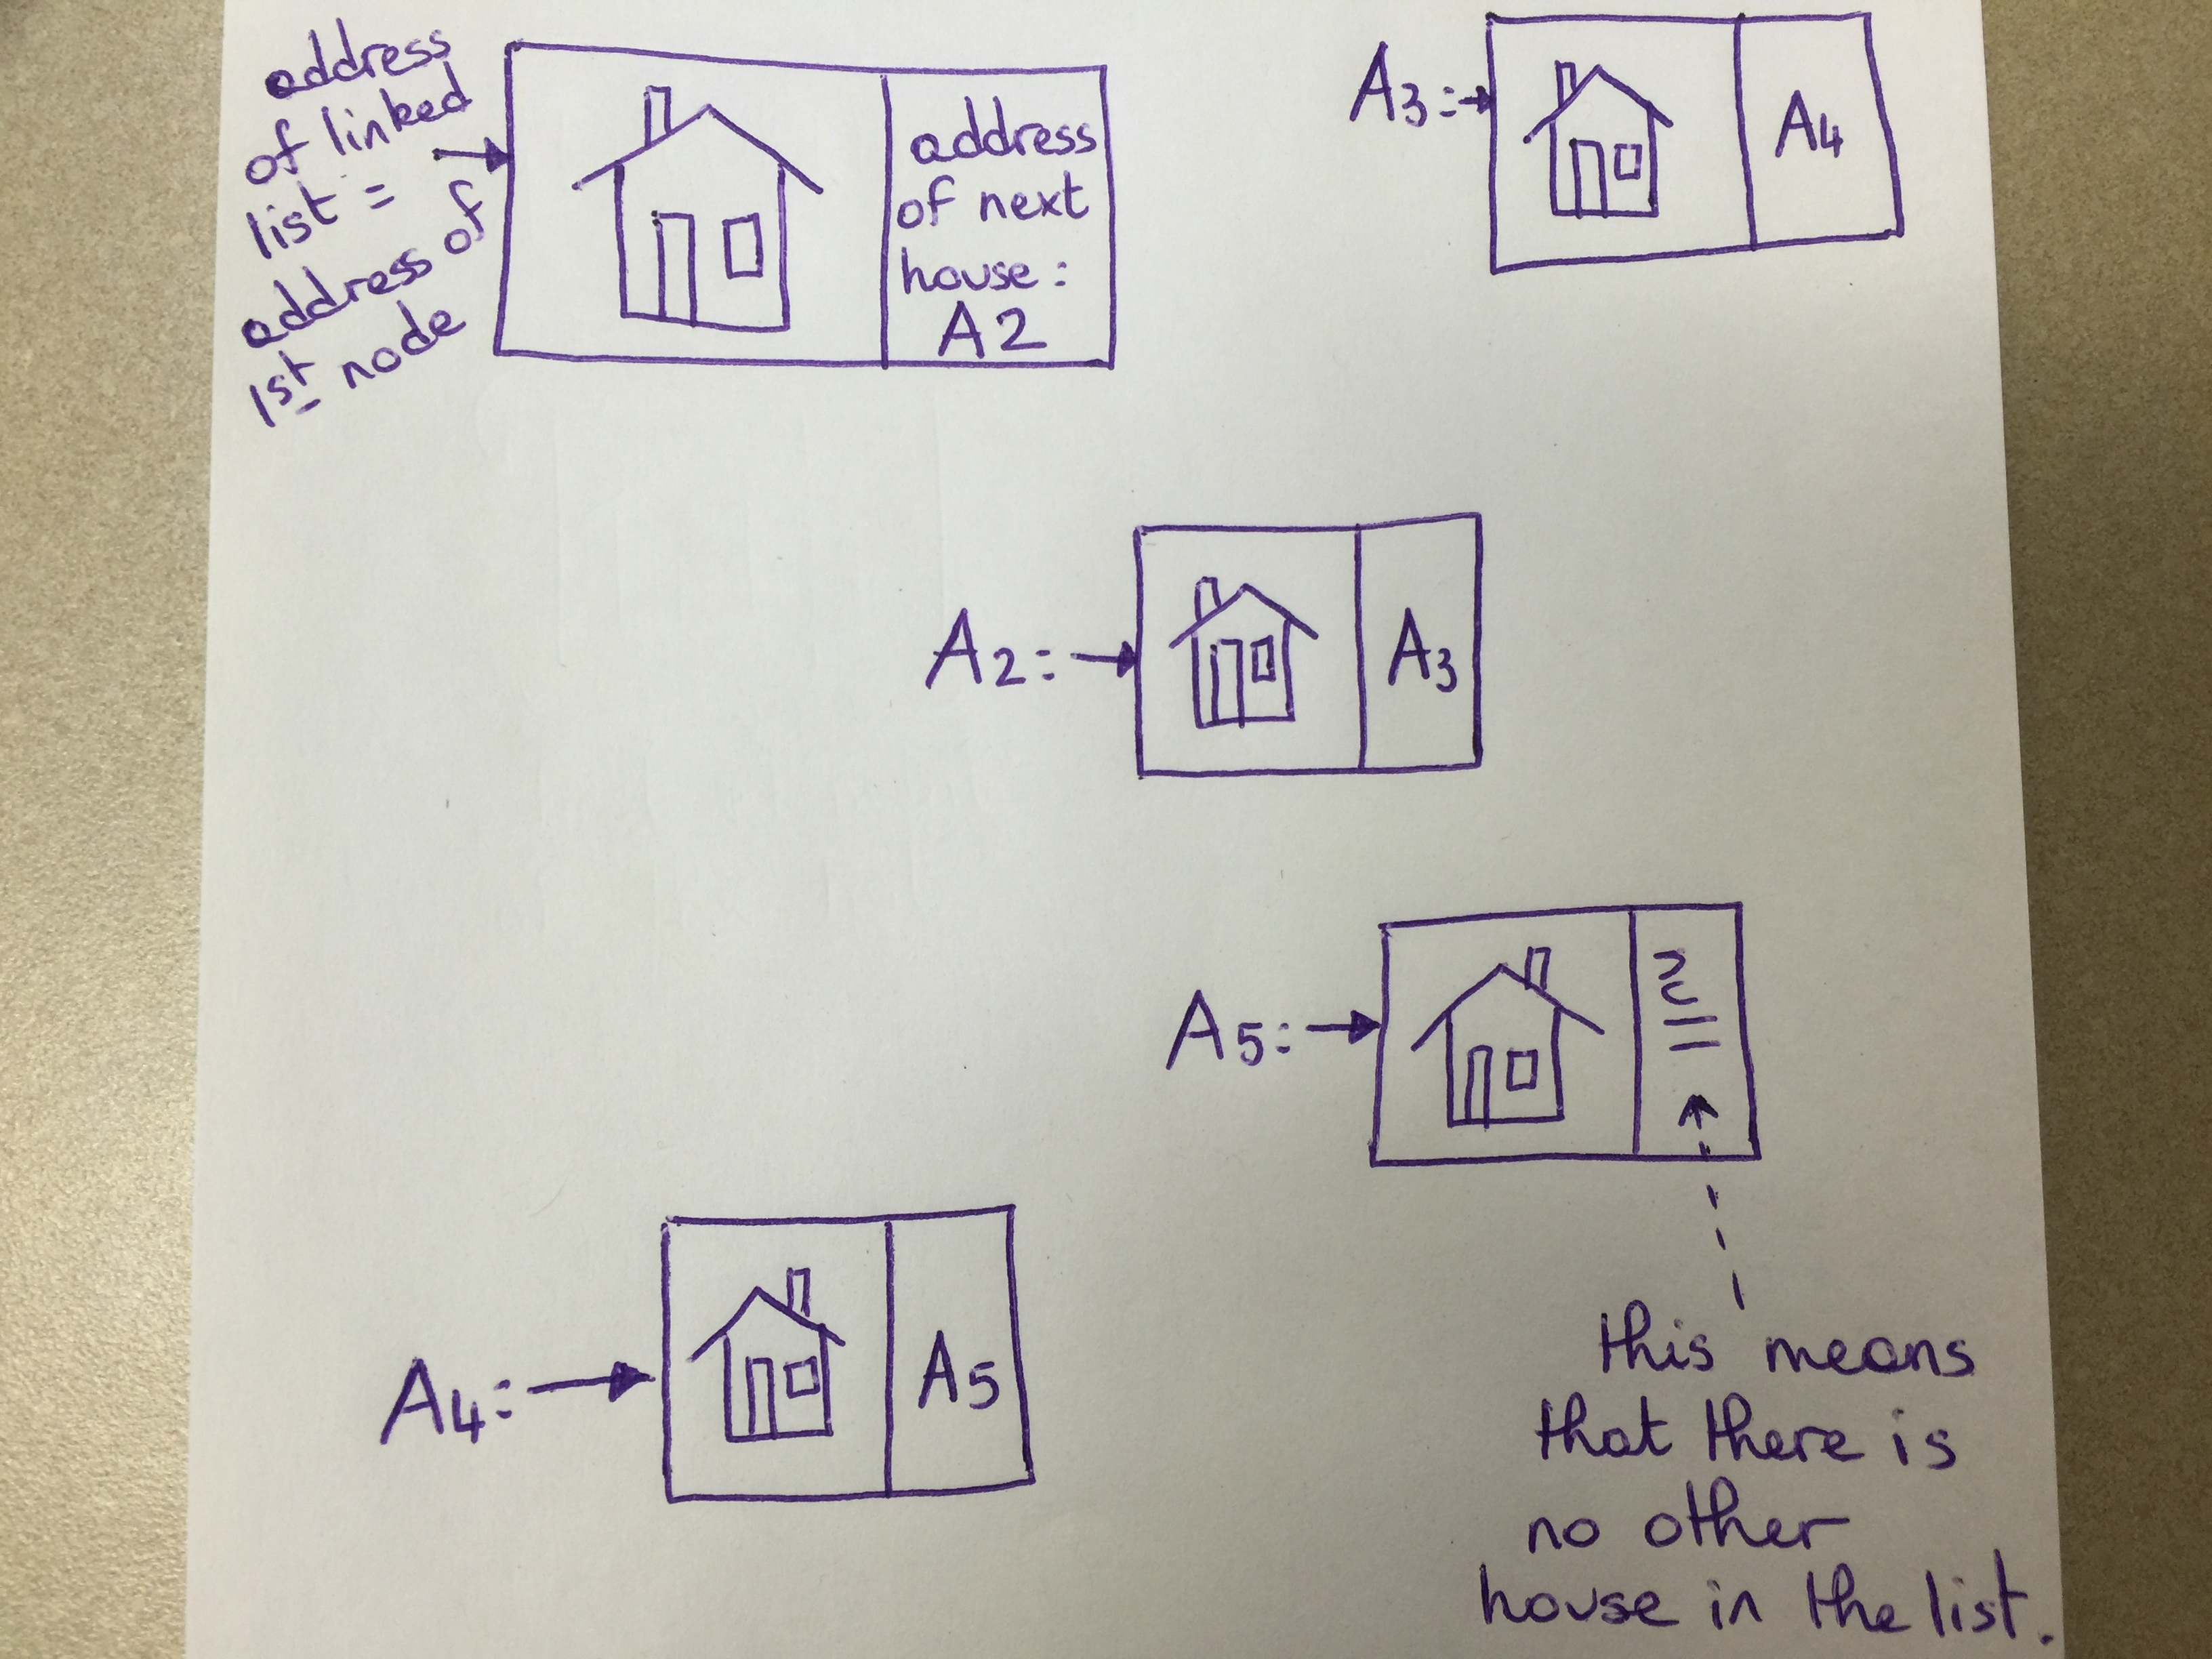 address
of linked
list =
address of
1st node
address
of next
house:
A2
A3:
A4
A2:
A3
A5:
A4:
A5
this means
that there is
no other
house in the list.